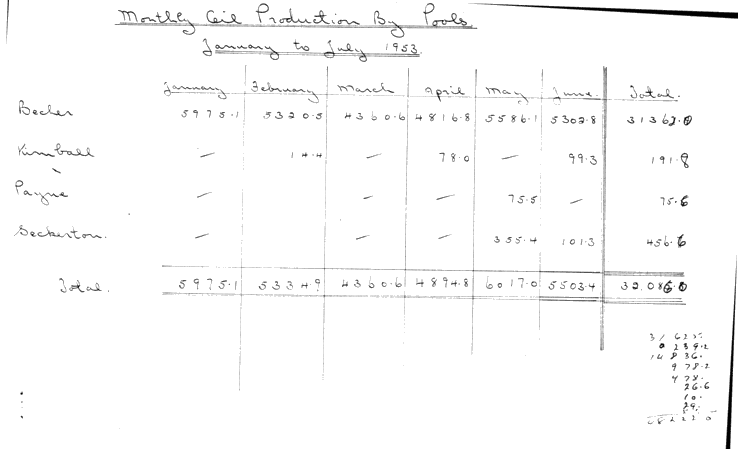 Monthly Oil Production By Pools
January to July 1953.
January February March April May June. Total.
Becher 5975.1 5320.5 4360.6 4816.8 5586.1 5302.8
Kimball — 14.4 — 78.0 — 99.3 191.8
Payne — — — 75.5 — 75.6
Seckerton. — — — 355.4 101.3 456.6
Total. 5975.1 5334.9 4360.6 4894.8 6017.0 5503.4
239.2
978.2
478.
26.6
10.
29.